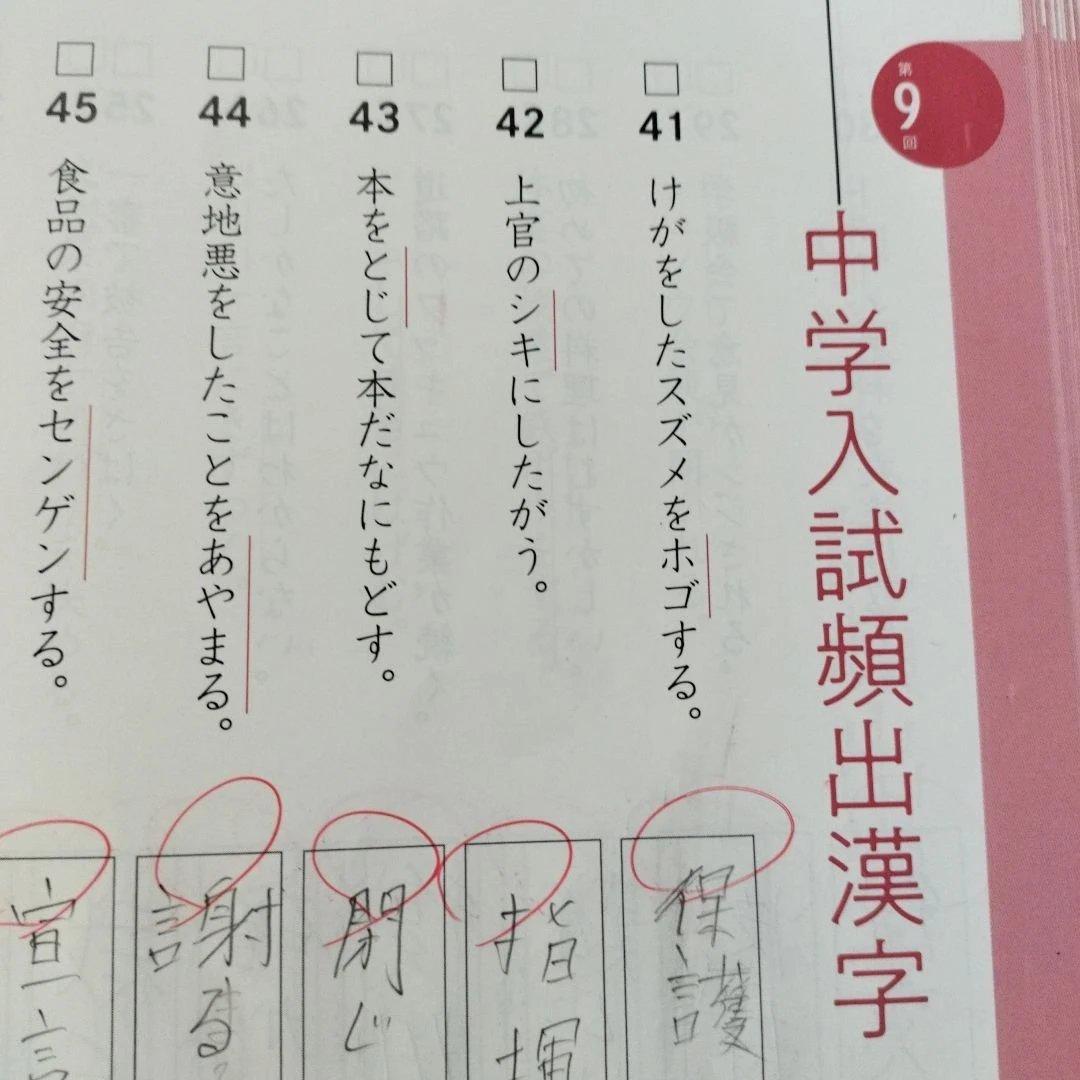 第9回
中学入試頻出漢字
41
けがをしたスズメをホゴする。
保護
42
上官のシキにしたがう。
指揮
43
本をとじて本だなにもどす。
閉じ
44
意地悪をしたことをあやまる。
謝る
45
食品の安全をセンゲンする。
宣言